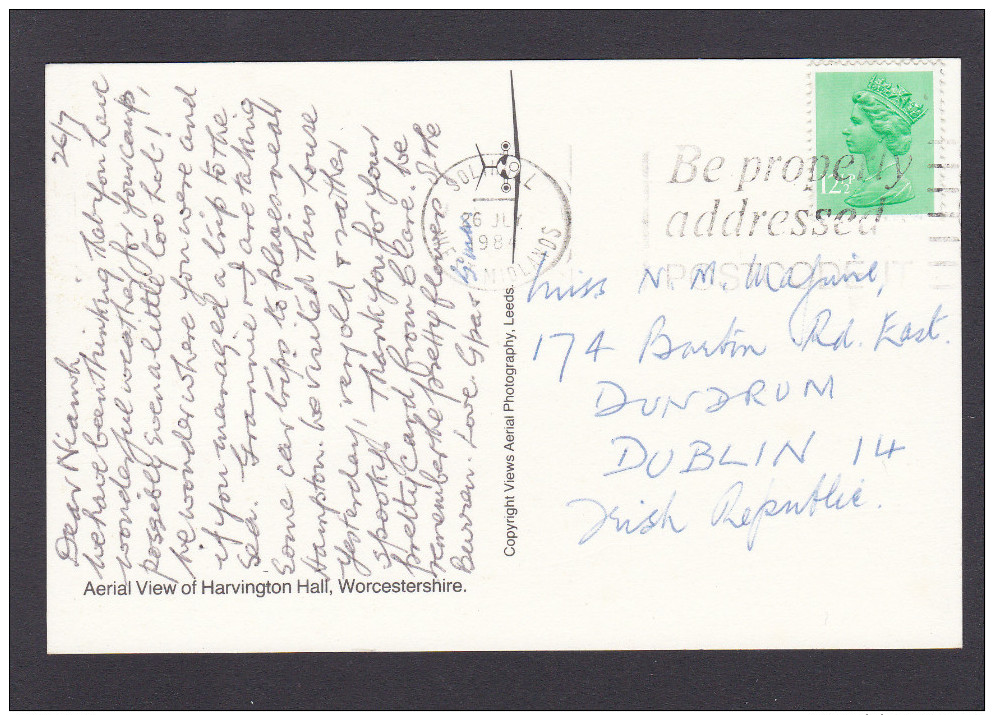 26/7
Dear Niamh
We have been thinking that you have
wonderful weather for your camp,
possibly even a little too hot!!
We wonder where you were and
if you managed a trip to the
sea. Frannie & I are taking
some car trips to places near
Hampton. We visited this house
yesterday, very old & rather
spooky! Thank you for your
pretty card from Clare. We
remember the pretty flowers of the
Burren. Love Gpar
Aerial View of Harvington Hall, Worcestershire.
Copyright Views Aerial Photography, Leeds.
SOLIHULL
26 JLY
1984
WEST MIDLANDS
Be properly
addressed
POSTCODE IT
12½P
Miss N. M. Maguire,
174 Barton Rd. East.
DUNDRUM
DUBLIN 14
Irish Republic.